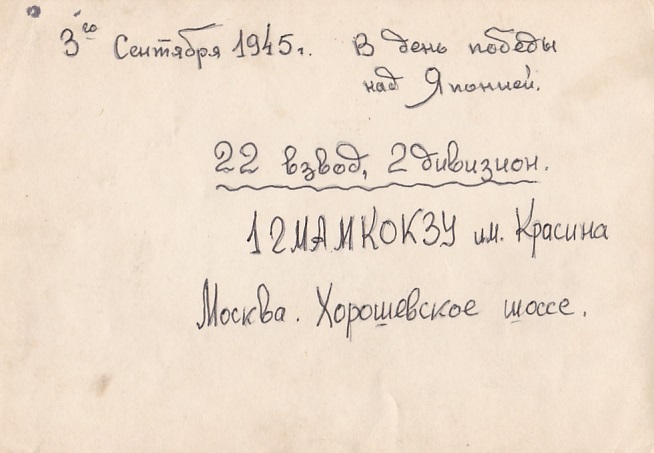 3го Сентября 1945г. В день победы
над Японией.
22 взвод, 2 дивизион.
1 2МАМКОКЗУ им. Красина
Москва. Хорошевское шоссе.